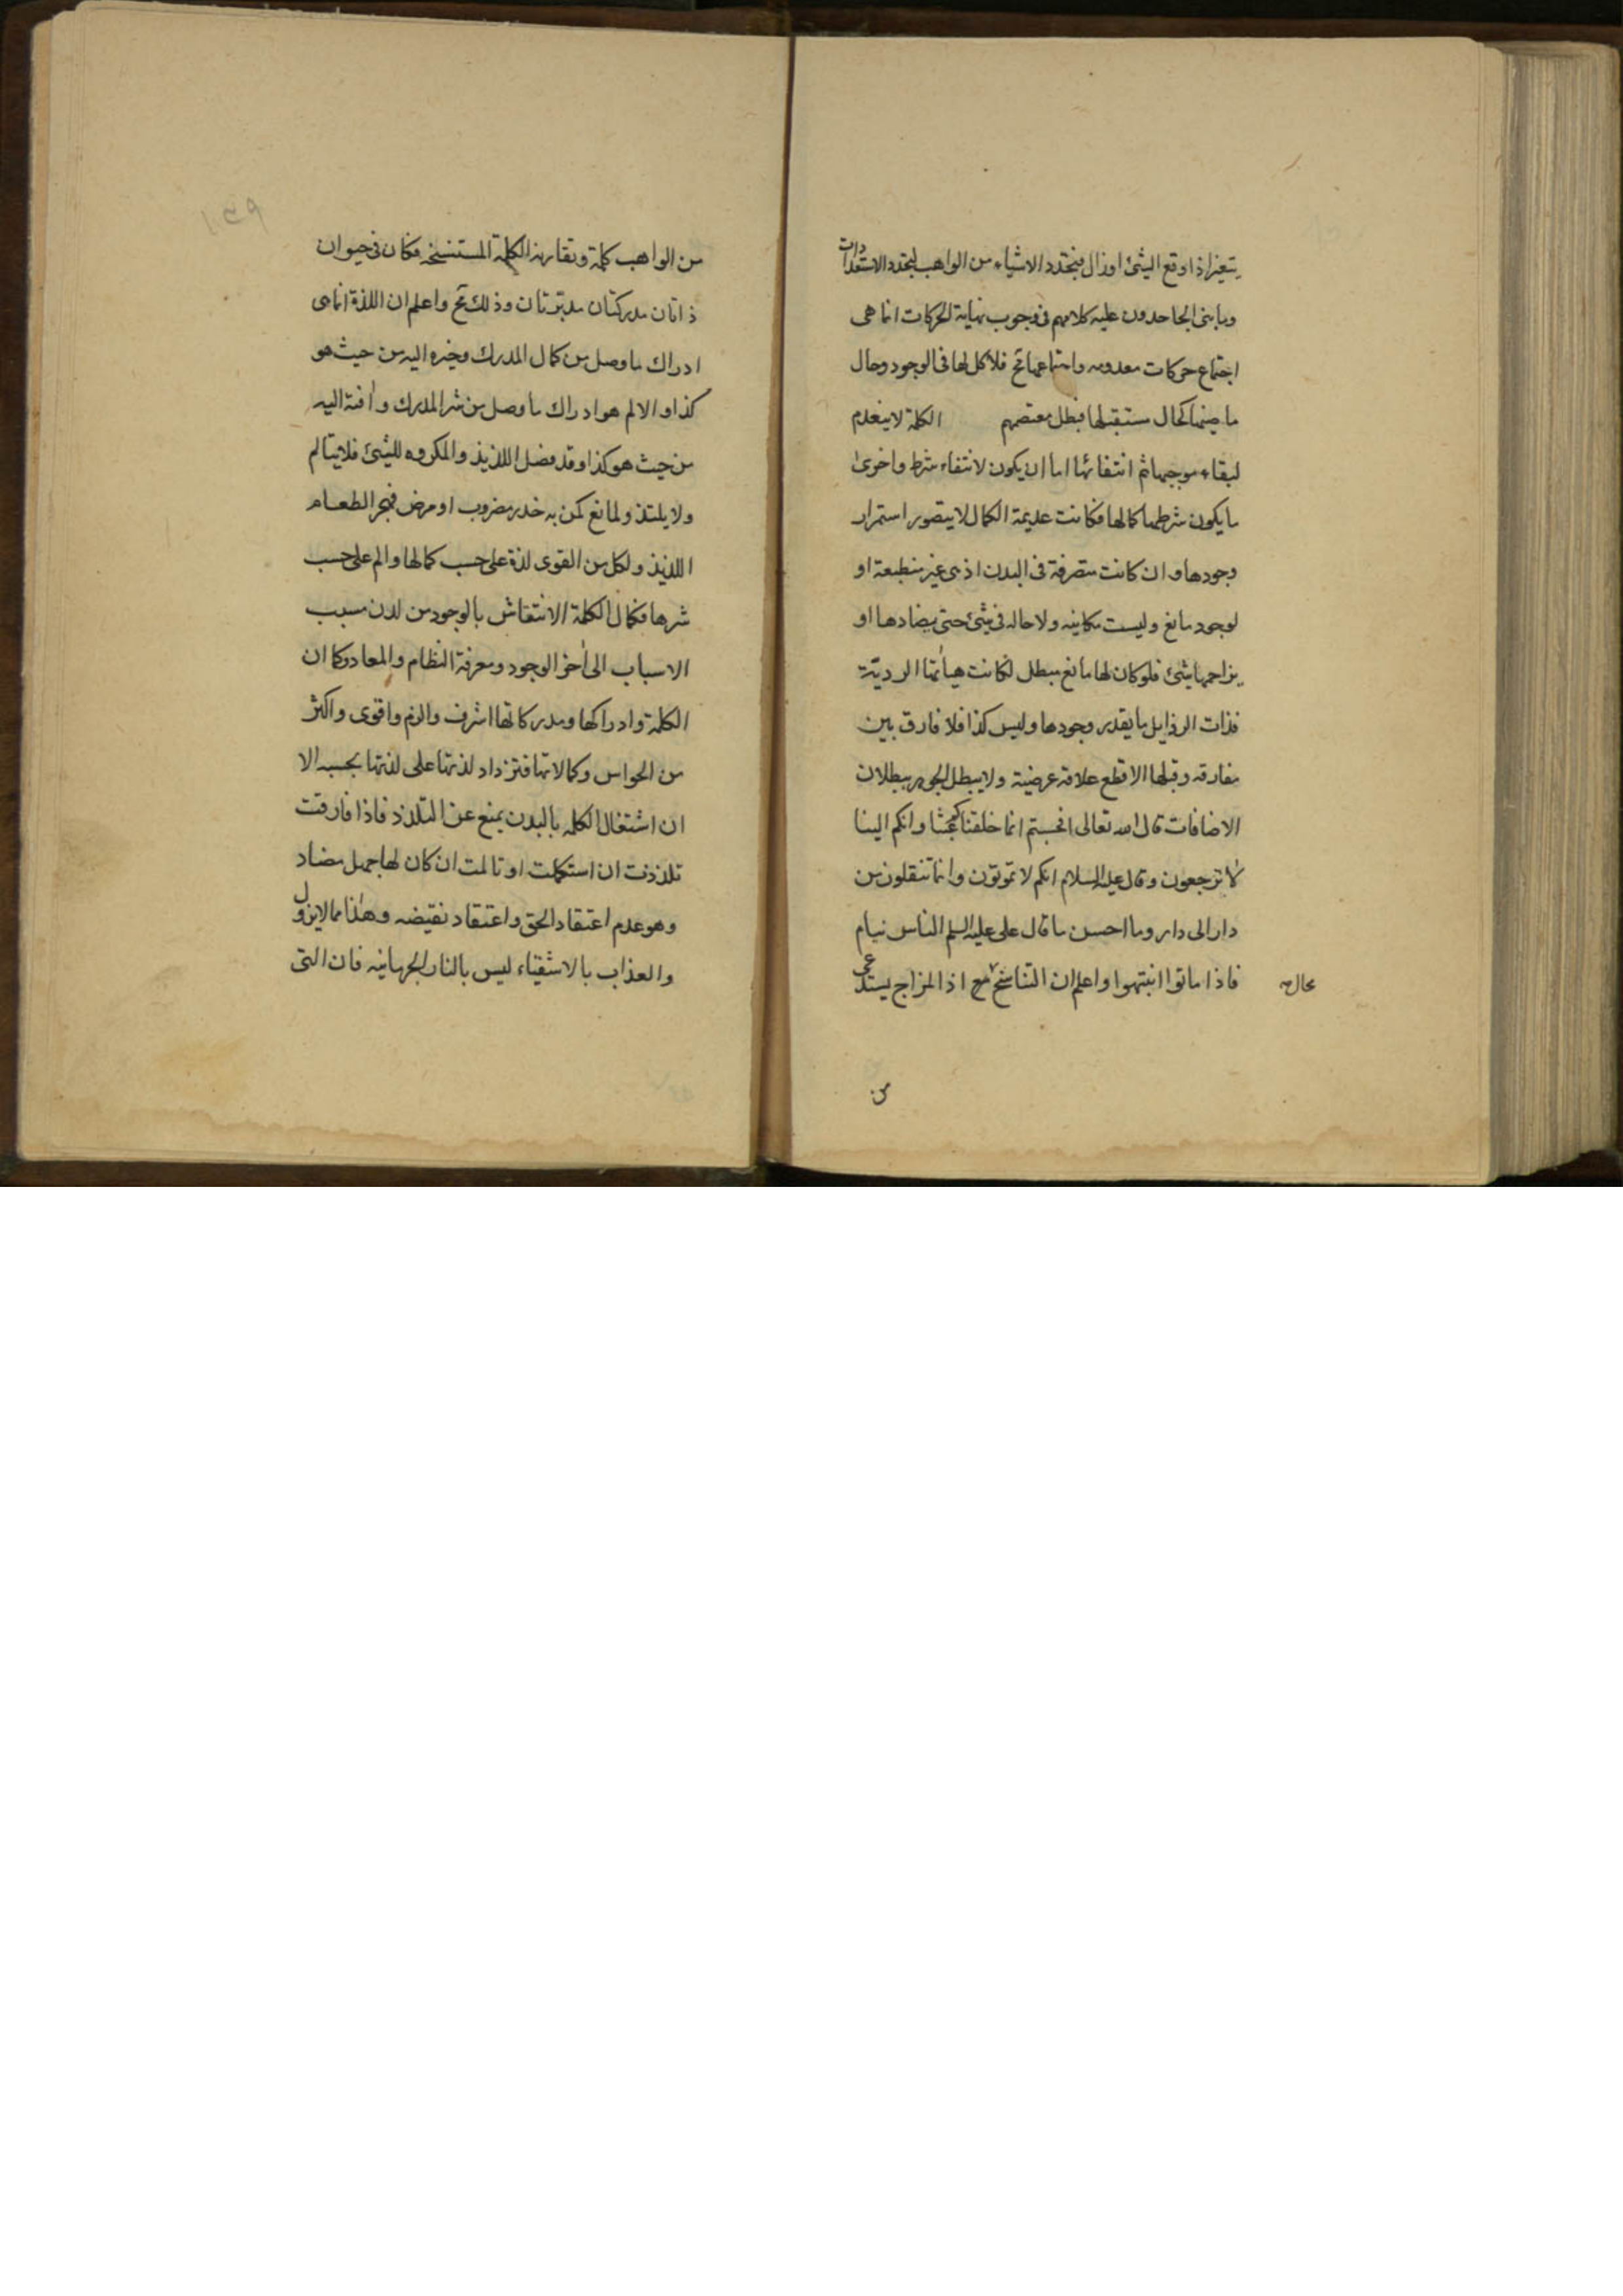 يتغير اذا وقع الشئ او زال فبتجدد الاشياء من الواهب لتجدد الاستعدادات
وما بنى الجاحدون عليه كلامهم فى وجوب نهاية الحركات انما هى
اجتماع حركات معدومه واجتماعها مح فلا كل لها فى الوجود وحال
ماضيها كحال مستقبلها فبطل معتصمهم الكلمة لا ينعدم
لبقاء موجبها ثم انتفائها اما ان يكون لانتفاء شرط واخرى
ما يكون شرطها كمالها فكانت عديمة الكمال لا يتصور استمرار
وجودها وان كانت متصرفة فى البدن اذ هى غير منطبعة او
لوجود مانع وليست مكانيه ولا حاله فى شئ حتى يضادها او
يزاحمها شئ فلو كان لها مانع مبطل لكانت هيأتها الرديّة
فذات الرذايل ما يقدر وجودها وليس كذا فلا فارق بين
مفارقه وقبلها الا قطع علاقة عرضية ولا يبطل الجوهر ببطلان
الاضافات قال الله تعالى افحسبتم انما خلقناكم عبثا وانكم الينا
لا ترجعون وقال عليه السلام انكم لا تموتون وانما تنقلون من
دار الى دار وما احسن ما قال على عليه السلم الناس نيام
فاذا ماتوا انتبهوا واعلم ان التناسخ مح اذ المزاج يستدعى
محال
من
١٣٩
من الواهب كلمة وتقارنه الكلمة المستنسخه فكان فى حيوان
ذاتان مدركتان مدبّرتان وذلك مح واعلم ان اللذة انما هى
ادراك ما وصل من كمال المدرك وخيره اليه من حيث هو
كذا والالم هو ادراك ما وصل من شر المدرك وآفته اليه
من حيث هو كذا وقد فضل اللذيذ والمكروه للشئ فلا يتالم
ولا يلتذ ولمانع كمن به خدر مضروب او مرض فهجر الطعام
اللذيذ ولكل من القوى لذة على حسب كمالها والم على حسب
شرها فكمال الكلمة الانتقاش بالوجود من لدن مسبب
الاسباب الى آخر الوجود ومعرفة النظام والمعاد وكما ان
الكلمة وادراكها ومدركاتها اشرف والزم واقوى واكثر
من الحواس وكمالاتها فتزداد لذتها على لذتها بحسبه الا
ان اشتغال الكلمه بالبدن يمنع عن التلذذ فاذا فارقت
تلذذت ان استكملت او تالمت ان كان لها جهل مضاد
وهو عدم اعتقاد الحق واعتقاد نقيضه وهذا مما لا يزول
والعذاب بالاشقياء ليس بالنار الجرمانيه فان التى